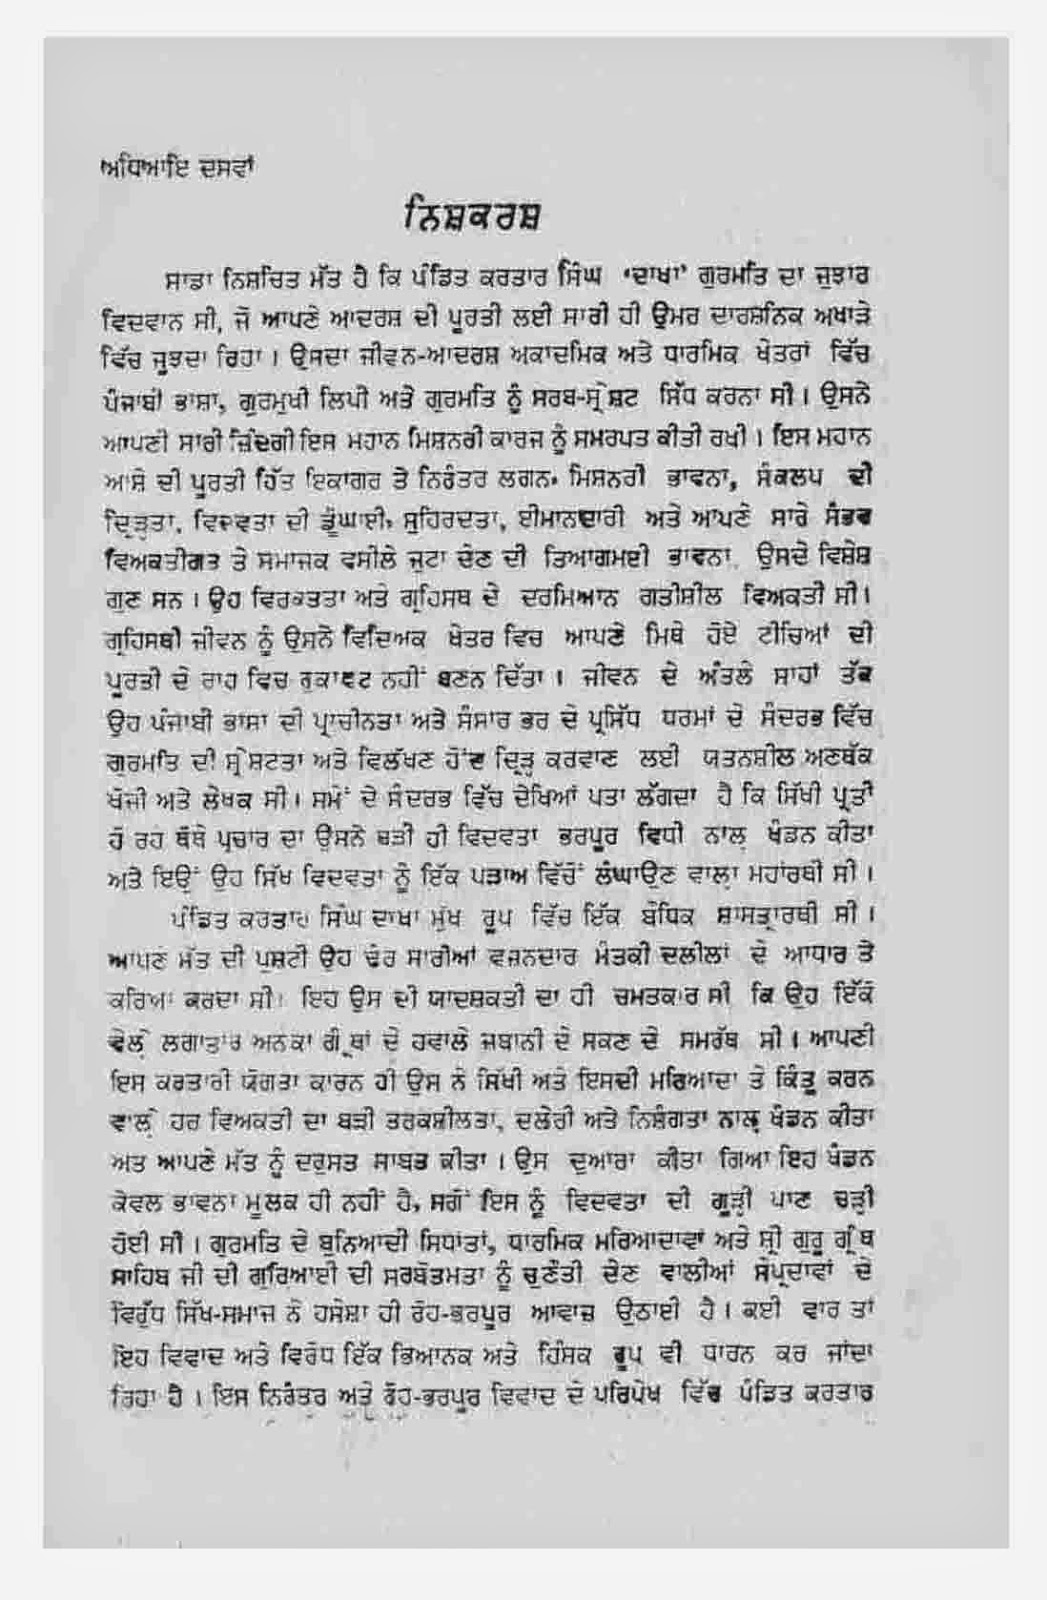 ਅਧਿਆਇ ਦਸਵਾਂ
ਨਿਸ਼ਕਰਸ਼
ਸਾਡਾ ਨਿਸ਼ਚਿਤ ਮੱਤ ਹੈ ਕਿ ਪੰਡਿਤ ਕਰਤਾਰ ਸਿੰਘ 'ਦਾਖਾ' ਗੁਰਮਤਿ ਦਾ ਜੁਝਾਰ
ਵਿਦਵਾਨ ਸੀ, ਜੋ ਆਪਣੇ ਆਦਰਸ਼ ਦੀ ਪੂਰਤੀ ਲਈ ਸਾਰੀ ਹੀ ਉਮਰ ਦਾਰਸ਼ਨਿਕ ਅਖਾੜੇ
ਵਿੱਚ ਜੂਝਦਾ ਰਿਹਾ । ਉਸਦਾ ਜੀਵਨ-ਆਦਰਸ਼ ਅਕਾਦਮਿਕ ਅਤੇ ਧਾਰਮਿਕ ਖੇਤਰਾਂ ਵਿੱਚ
ਪੰਜਾਬੀ ਭਾਸ਼ਾ, ਗੁਰਮੁਖੀ ਲਿਪੀ ਅਤੇ ਗੁਰਮਤਿ ਨੂੰ ਸਰਬ-ਸ੍ਰੇਸ਼ਟ ਸਿੱਧ ਕਰਨਾ ਸੀ । ਉਸਨੇ
ਆਪਣੀ ਸਾਰੀ ਜ਼ਿੰਦਗੀ ਇਸ ਮਹਾਨ ਮਿਸ਼ਨਰੀ ਕਾਰਜ ਨੂੰ ਸਮਰਪਤ ਕੀਤੀ ਰਖੀ । ਇਸ ਮਹਾਨ
ਆਸ਼ੇ ਦੀ ਪੂਰਤੀ ਹਿੱਤ ਇਕਾਗਰ ਤੇ ਨਿਰੰਤਰ ਲਗਨ, ਮਿਸ਼ਨਰੀ ਭਾਵਨਾ, ਸੰਕਲਪ ਦੀ
ਦ੍ਰਿੜ੍ਹਤਾ, ਵਿਦਵਤਾ ਦੀ ਡੂੰਘਾਈ, ਸੁਹਿਰਦਤਾ, ਈਮਾਨਦਾਰੀ ਅਤੇ ਆਪਣੇ ਸਾਰੇ ਸੰਭਵ
ਵਿਅਕਤੀਗਤ ਤੇ ਸਮਾਜਕ ਵਸੀਲੇ ਜੁਟਾ ਦੇਣ ਦੀ ਤਿਆਗਮਈ ਭਾਵਨਾ, ਉਸਦੇ ਵਿਸ਼ੇਸ਼
ਗੁਣ ਸਨ । ਉਹ ਵਿਰਕਤਤਾ ਅਤੇ ਗ੍ਰਹਿਸਥ ਦੇ ਦਰਮਿਆਨ ਗਤੀਸ਼ੀਲ ਵਿਅਕਤੀ ਸੀ।
ਗ੍ਰਹਿਸਥੀ ਜੀਵਨ ਨੂੰ ਉਸਨੇ ਵਿਦਿਅਕ ਖੇਤਰ ਵਿਚ ਆਪਣੇ ਮਿਥੇ ਹੋਏ ਟੀਚਿਆਂ ਦੀ
ਪੂਰਤੀ ਦੇ ਰਾਹ ਵਿਚ ਰੁਕਾਵਟ ਨਹੀਂ ਬਣਨ ਦਿੱਤਾ । ਜੀਵਨ ਦੇ ਅੰਤਲੇ ਸਾਹਾਂ ਤੱਕ
ਉਹ ਪੰਜਾਬੀ ਭਾਸ਼ਾ ਦੀ ਪ੍ਰਾਚੀਨਤਾ ਅਤੇ ਸੰਸਾਰ ਭਰ ਦੇ ਪ੍ਰਸਿੱਧ ਧਰਮਾਂ ਦੇ ਸੰਦਰਭ ਵਿੱਚ
ਗੁਰਮਤਿ ਦੀ ਸ੍ਰੇਸ਼ਟਤਾ ਅਤੇ ਵਿਲੱਖਣ ਹੋਂਦ ਦ੍ਰਿੜ੍ਹ ਕਰਵਾਣ ਲਈ ਯਤਨਸ਼ੀਲ ਅਣਥੱਕ
ਖੋਜੀ ਅਤੇ ਲੇਖਕ ਸੀ। ਸਮੇਂ ਦੇ ਸੰਦਰਭ ਵਿੱਚ ਦੇਖਿਆਂ ਪਤਾ ਲੱਗਦਾ ਹੈ ਕਿ ਸਿੱਖੀ ਪ੍ਰਤੀ
ਹੋ ਰਹੇ ਥੋਥੇ ਪ੍ਰਚਾਰ ਦਾ ਉਸਨੇ ਬੜੀ ਹੀ ਵਿਦਵਤਾ ਭਰਪੂਰ ਵਿਧੀ ਨਾਲ ਖੰਡਨ ਕੀਤਾ
ਅਤੇ ਇਉਂ ਉਹ ਸਿੱਖ ਵਿਦਵਤਾ ਨੂੰ ਇੱਕ ਪੜਾਅ ਵਿੱਚੋਂ ਲੰਘਾਉਣ ਵਾਲਾ ਮਹਾਂਰਥੀ ਸੀ ।
ਪੰਡਿਤ ਕਰਤਾਰ ਸਿੰਘ ਦਾਖਾ ਮੁੱਖ ਰੂਪ ਵਿੱਚ ਇੱਕ ਬੌਧਿਕ ਸ਼ਾਸਤ੍ਰਾਰਥੀ ਸੀ ।
ਆਪਣੇ ਮੱਤ ਦੀ ਪੁਸ਼ਟੀ ਉਹ ਢੇਰ ਸਾਰੀਆਂ ਵਜ਼ਨਦਾਰ ਮੰਤਕੀ ਦਲੀਲਾਂ ਦੇ ਆਧਾਰ ਤੇ
ਕਰਿਆ ਕਰਦਾ ਸੀ। ਇਹ ਉਸ ਦੀ ਯਾਦਸ਼ਕਤੀ ਦਾ ਹੀ ਚਮਤਕਾਰ ਸੀ ਕਿ ਉਹ ਇੱਕੋ
ਵੇਲੇ ਲਗਾਤਾਰ ਅਨੇਕਾਂ ਗ੍ਰੰਥਾਂ ਦੇ ਹਵਾਲੇ ਜ਼ਬਾਨੀ ਦੇ ਸਕਣ ਦੇ ਸਮਰੱਥ ਸੀ । ਆਪਣੀ
ਇਸ ਕਰਤਾਰੀ ਯੋਗਤਾ ਕਾਰਨ ਹੀ ਉਸ ਨੇ ਸਿੱਖੀ ਅਤੇ ਇਸਦੀ ਮਰਿਆਦਾ ਤੇ ਕਿੰਤੂ ਕਰਨ
ਵਾਲੇ ਹਰ ਵਿਅਕਤੀ ਦਾ ਬੜੀ ਤਰਕਸ਼ੀਲਤਾ, ਦਲੇਰੀ ਅਤੇ ਨਿਸ਼ੰਗਤਾ ਨਾਲ ਖੰਡਨ ਕੀਤਾ
ਅਤੇ ਆਪਣੇ ਮੱਤ ਨੂੰ ਦਰੁਸਤ ਸਾਬਤ ਕੀਤਾ । ਉਸ ਦੁਆਰਾ ਕੀਤਾ ਗਿਆ ਇਹ ਖੰਡਨ
ਕੇਵਲ ਭਾਵਨਾ ਮੂਲਕ ਹੀ ਨਹੀਂ ਹੈ, ਸਗੋਂ ਇਸ ਨੂੰ ਵਿਦਵਤਾ ਦੀ ਗੂੜ੍ਹੀ ਪਾਣ ਚੜ੍ਹੀ
ਹੋਈ ਸੀ । ਗੁਰਮਤਿ ਦੇ ਬੁਨਿਆਦੀ ਸਿਧਾਂਤਾਂ, ਧਾਰਮਿਕ ਮਰਿਆਦਾਵਾਂ ਅਤੇ ਸ੍ਰੀ ਗੁਰੂ ਗ੍ਰੰਥ
ਸਾਹਿਬ ਜੀ ਦੀ ਗੁਰਿਆਈ ਦੀ ਸਰਬੋਤਮਤਾ ਨੂੰ ਚੁਣੌਤੀ ਦੇਣ ਵਾਲੀਆਂ ਸੰਪ੍ਰਦਾਵਾਂ ਦੇ
ਵਿਰੁੱਧ ਸਿੱਖ-ਸਮਾਜ ਨੇ ਹਮੇਸ਼ਾ ਹੀ ਰੋਹ-ਭਰਪੂਰ ਆਵਾਜ਼ ਉਠਾਈ ਹੈ । ਕਈ ਵਾਰ ਤਾਂ
ਇਹ ਵਿਵਾਦ ਅਤੇ ਵਿਰੋਧ ਇੱਕ ਭਿਆਨਕ ਅਤੇ ਹਿੰਸਕ ਰੂਪ ਵੀ ਧਾਰਨ ਕਰ ਜਾਂਦਾ
ਰਿਹਾ ਹੈ । ਇਸ ਨਿਰੰਤਰ ਅਤੇ ਰੋਹ-ਭਰਪੂਰ ਵਿਵਾਦ ਦੇ ਪਰਿਪੇਖ ਵਿੱਚ ਪੰਡਿਤ ਕਰਤਾਰ